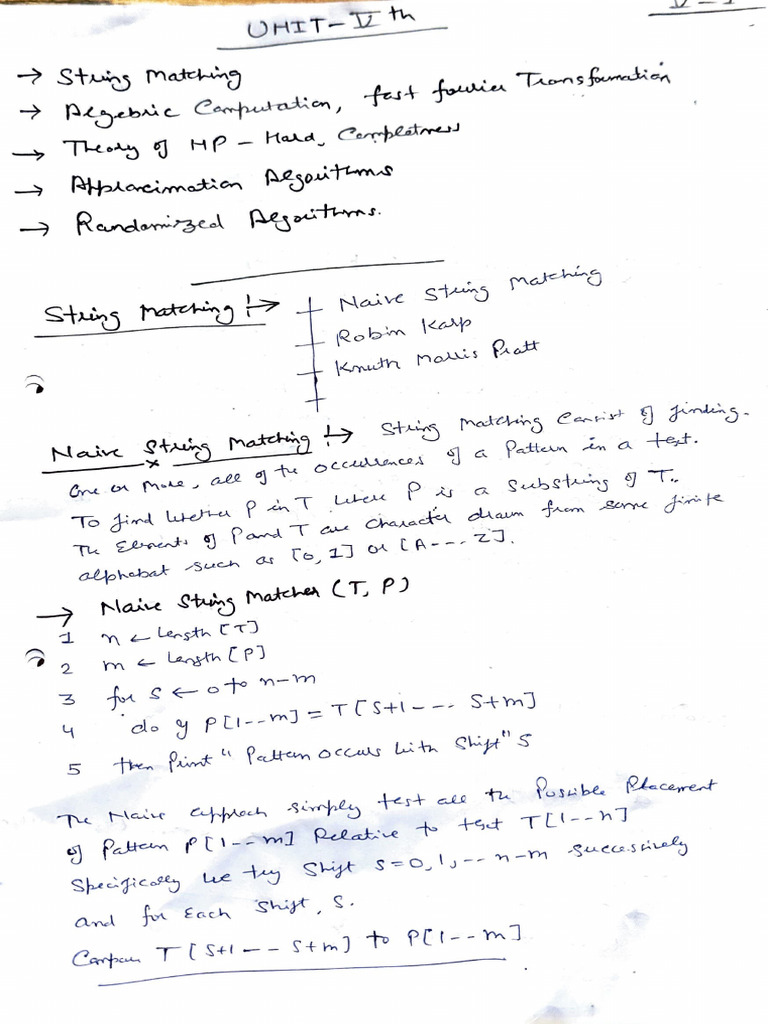 V-1
UNIT-Vth
→ String Matching
→ Algebric Computation, fast fourier Transformation
→ Theory of NP-Hard, Completness
→ Approximation Algorithms
→ Randomized Algorithms.
String Matching :→ Naive String Matching
Robin Karp
Knuth Morris Pratt
Naive String Matching :→ String Matching Consist of finding.
One or More, all of the occurrences of a Pattern in a text.
To find whether P in T where P is a substring of T..
The Elements of P and T are character drawn from some finite
alphabat such as [0,1] or [A--- Z].
→ Naive String Matcher (T, P)
1 n ← Length [T]
2 m ← Length [P]
3 for s ← 0 to n-m
4 do if P[1--m] = T[S+1--- S+m]
5 then Print "Pattern occurs with Shift" S
The Naive approch simply test all the Possible Placement
of Pattern P[1--m] Relative to text T[1--n]
Specifically we try Shift s=0,1,-- n-m successively
and for Each Shift, S.
Compare T [S+1-- S+m] to P[1--m]